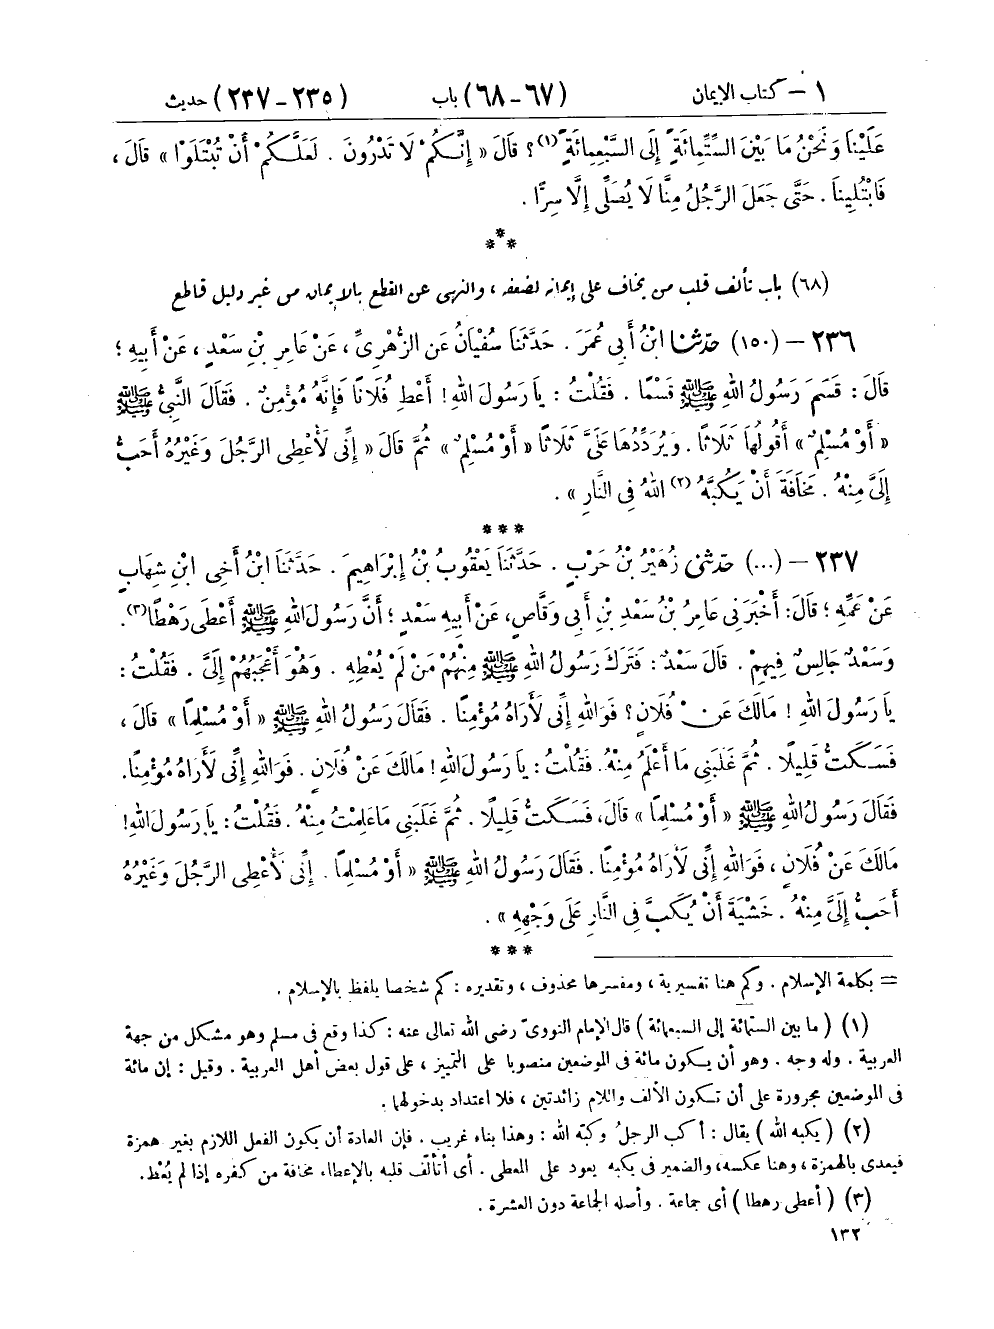 ١ – كتاب الإيمان (٦٧–٦٨) باب (٢٣٥–٢٣٧) حديث
عَلَيْنَا وَنَحْنُ مَا بَيْنَ السِّتِّمِائَةِ إِلَى السَّبْعِمِائَةِ (١)؟ قَالَ « إِنَّكُمْ لَا تَدْرُونَ . لَعَلَّكُمْ أَنْ تُبْتَلَوْا » قَالَ ،
فَابْتُلِينَا . حَتَّى جَعَلَ الرَّجُلُ مِنَّا لَا يُصَلِّي إِلَّا سِرًّا .
***
(٦٨) باب تألف قلب من يخاف على إيمانه لضعفه ، والنهى عن القطع بالإيمان من غير دليل قاطع
٢٣٦ – (١٥٠) حَدَّثَنَا ابْنُ أَبِي عُمَرَ . حَدَّثَنَا سُفْيَانُ عَنِ الزُّهْرِيِّ ، عَنْ عَامِرِ بْنِ سَعْدٍ ، عَنْ أَبِيهِ ؛
قَالَ : قَسَمَ رَسُولُ اللهِ ﷺ قَسْمًا . فَقُلْتُ : يَا رَسُولَ اللهِ ! أَعْطِ فُلَانًا فَإِنَّهُ مُؤْمِنٌ . فَقَالَ النَّبِيُّ ﷺ
« أَوْ مُسْلِمٌ » أَقُولُهَا ثَلَاثًا . وَيُرَدِّدُهَا عَلَيَّ ثَلَاثًا « أَوْ مُسْلِمٌ » ثُمَّ قَالَ « إِنِّي لَأُعْطِي الرَّجُلَ وَغَيْرُهُ أَحَبُّ
إِلَيَّ مِنْهُ . مَخَافَةَ أَنْ يَكُبَّهُ (٢) اللهُ فِي النَّارِ » .
***
٢٣٧ – (...) حَدَّثَنِي زُهَيْرُ بْنُ حَرْبٍ . حَدَّثَنَا يَعْقُوبُ بْنُ إِبْرَاهِيمَ . حَدَّثَنَا ابْنُ أَخِي ابْنِ شِهَابٍ
عَنْ عَمِّهِ ؛ قَالَ : أَخْبَرَنِي عَامِرُ بْنُ سَعْدِ بْنِ أَبِي وَقَّاصٍ، عَنْ أَبِيهِ سَعْدٍ ؛ أَنَّ رَسُولَ اللهِ ﷺ أَعْطَى رَهْطًا (٣).
وَسَعْدٌ جَالِسٌ فِيهِمْ . قَالَ سَعْدٌ : فَتَرَكَ رَسُولُ اللهِ ﷺ مِنْهُمْ مَنْ لَمْ يُعْطِهِ . وَهُوَ أَعْجَبُهُمْ إِلَيَّ . فَقُلْتُ :
يَا رَسُولَ اللهِ ! مَالَكَ عَنْ فُلَانٍ ؟ فَوَاللهِ إِنِّي لَأَرَاهُ مُؤْمِنًا . فَقَالَ رَسُولُ اللهِ ﷺ « أَوْ مُسْلِمًا » قَالَ ،
فَسَكَتُّ قَلِيلًا . ثُمَّ غَلَبَنِي مَا أَعْلَمُ مِنْهُ. فَقُلْتُ : يَا رَسُولَ اللهِ ! مَالَكَ عَنْ فُلَانٍ . فَوَاللهِ إِنِّي لَأَرَاهُ مُؤْمِنًا.
فَقَالَ رَسُولُ اللهِ ﷺ « أَوْ مُسْلِمًا » قَالَ، فَسَكَتُّ قَلِيلًا . ثُمَّ غَلَبَنِي مَا عَلِمْتُ مِنْهُ . فَقُلْتُ : يَا رَسُولَ اللهِ!
مَالَكَ عَنْ فُلَانٍ ، فَوَاللهِ إِنِّي لَأَرَاهُ مُؤْمِنًا . فَقَالَ رَسُولُ اللهِ ﷺ « أَوْ مُسْلِمًا . إِنِّي لَأُعْطِي الرَّجُلَ وَغَيْرُهُ
أَحَبُّ إِلَيَّ مِنْهُ . خَشْيَةَ أَنْ يُكَبَّ فِي النَّارِ عَلَى وَجْهِهِ » .
***
= بكلمة الإسلام . وكم هنا تفسيرية ، ومفسرها محذوف ، وتقديره : كم شخصا يلفظ بالإسلام .
(١) ( ما بين الستمائة إلى السبعمائة ) قال الإمام النووىّ رضى الله تعالى عنه : كذا وقع فى مسلم وهو مشكل من جهة
العربية . وله وجه . وهو أن يكون مائة فى الموضعين منصوبا على التمييز ، على قول بعض أهل العربية . وقيل : إن مائة
فى الموضعين مجرورة على أن تكون الألف واللام زائدتين ، فلا اعتداد بدخولهما .
(٢) ( يكبه الله ) يقال : أكب الرجلُ وكبّه الله : وهذا بناء غريب . فإن العادة أن يكون الفعل اللازم بغير همزة
فيعدى بالهمزة ، وهنا عكسه، والضمير فى يكبه يعود على المعطى . أى أتألّف قلبه بالإعطاء مخافة من كفره إذا لم يُعْطَ.
(٣) ( أعطى رهطا ) أى جماعة . وأصله الجماعة دون العشرة .
١٣٢